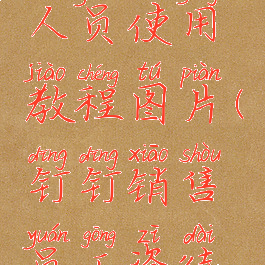 人员使用
jiào chéng tú piàn
教程图片(
dīng dīng xiāo shòu
钉钉销售
yuán gōng zī dài